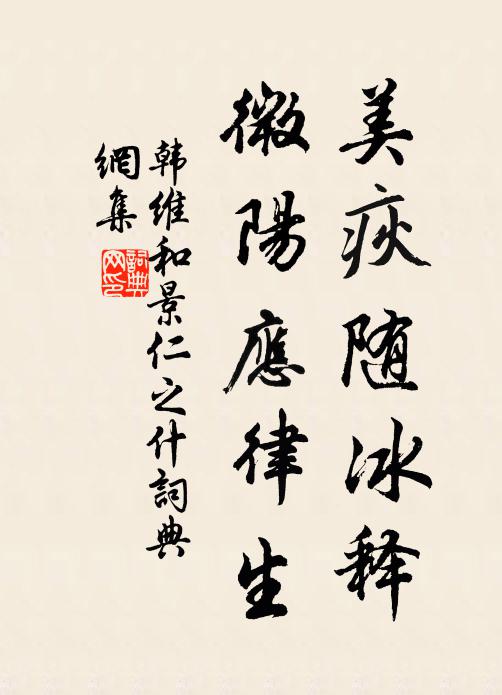 美疢随冰释
微陽應律生
韩維和景仁之什詞典
網集
詞典网印